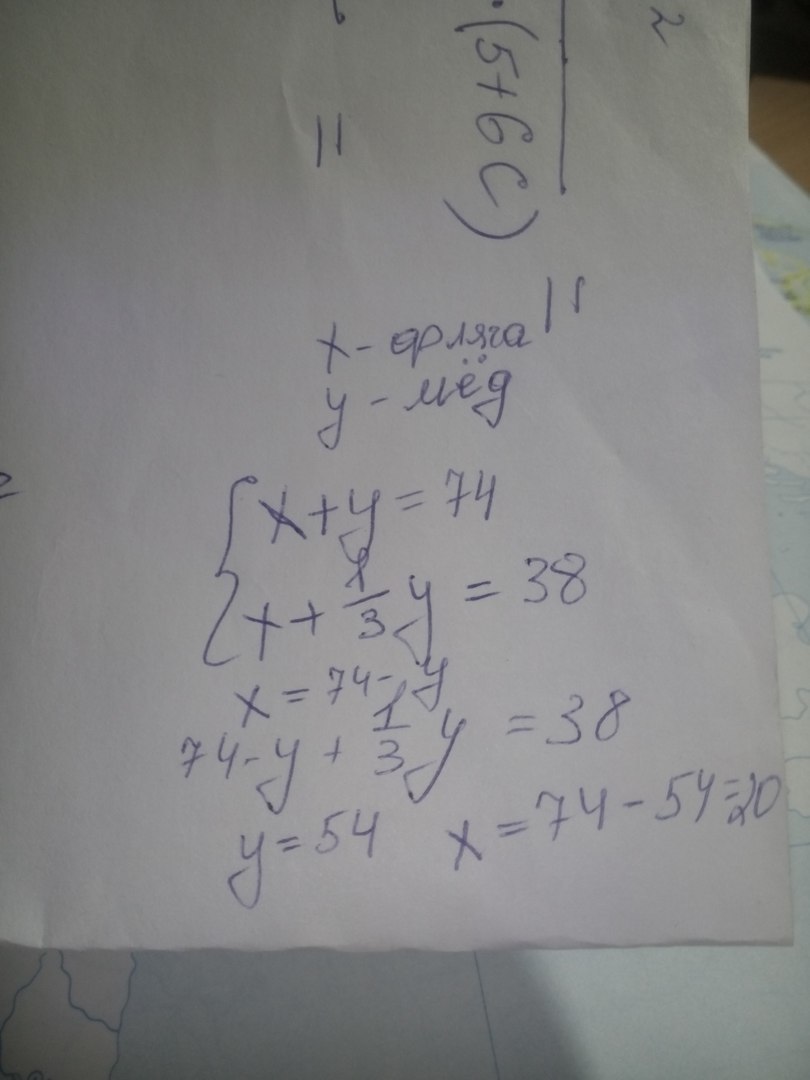 2
·(5+6c)
=
=
x - фляга
y - мёд
x + y = 74
x + 1/3 y = 38
x = 74 - y
74 - y + 1/3 y = 38
y = 54 x = 74 - 54 = 20